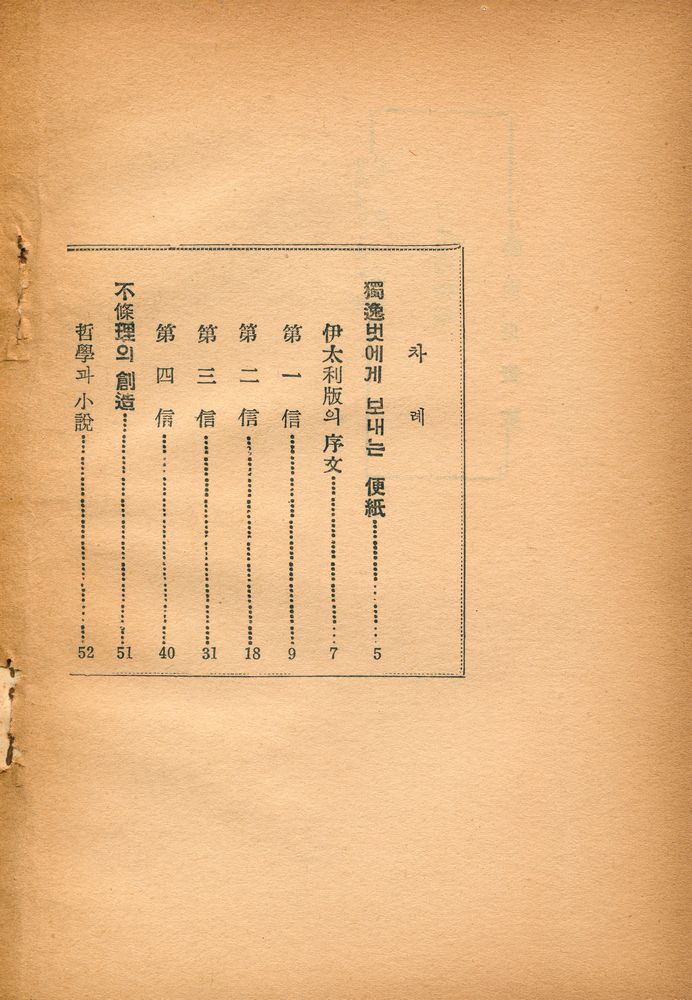 차례
獨逸벗에게 보내는 便紙 5
伊太利版의 序文 7
第一信 9
第二信 18
第三信 31
第四信 40
不條理의 創造 51
哲學과 小說 52